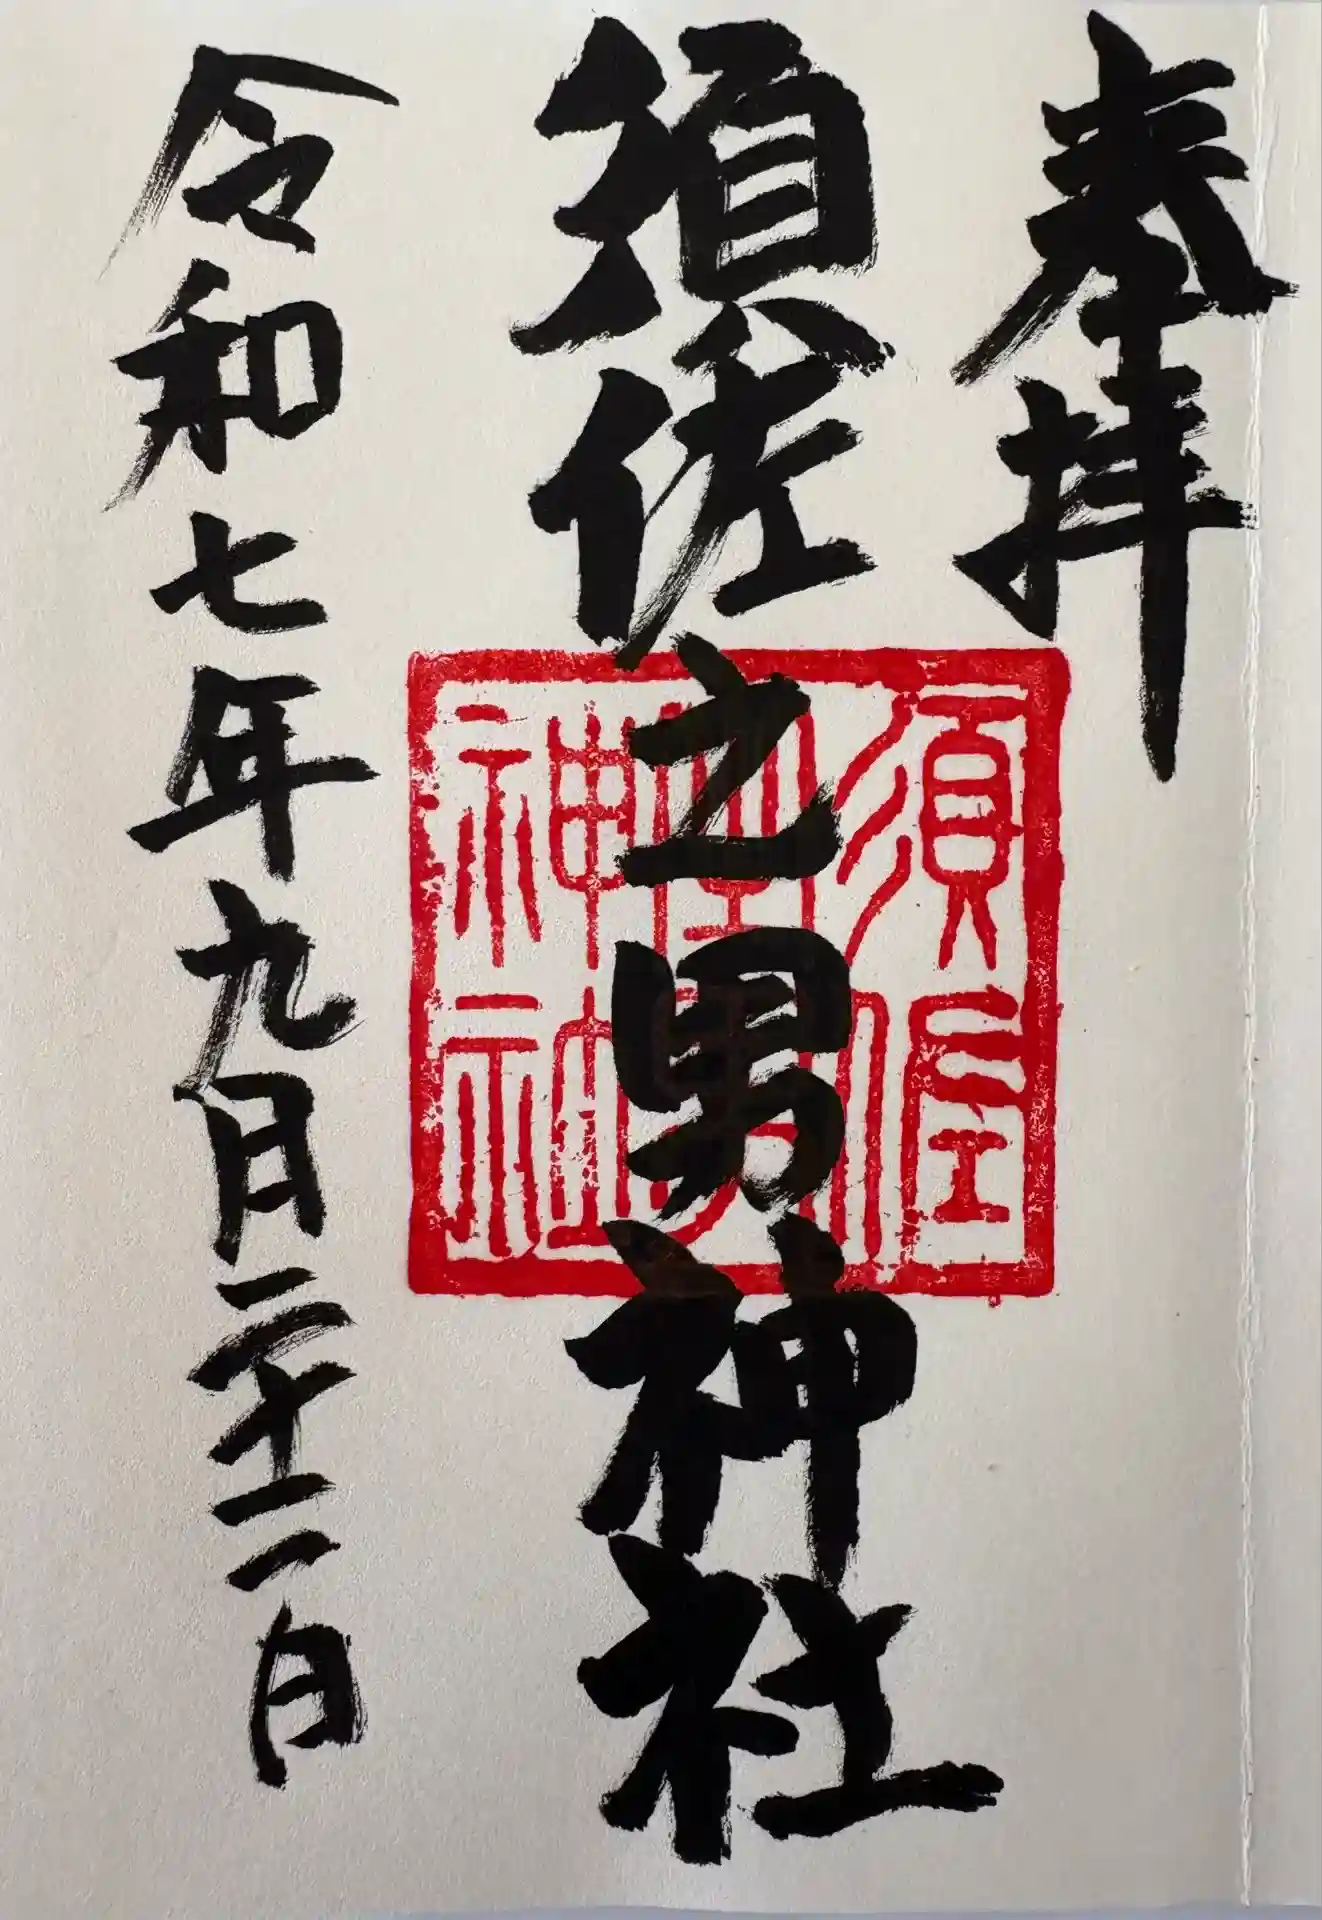 奉拝
須佐之男神社
令和七年九月二十二日
須佐
神社